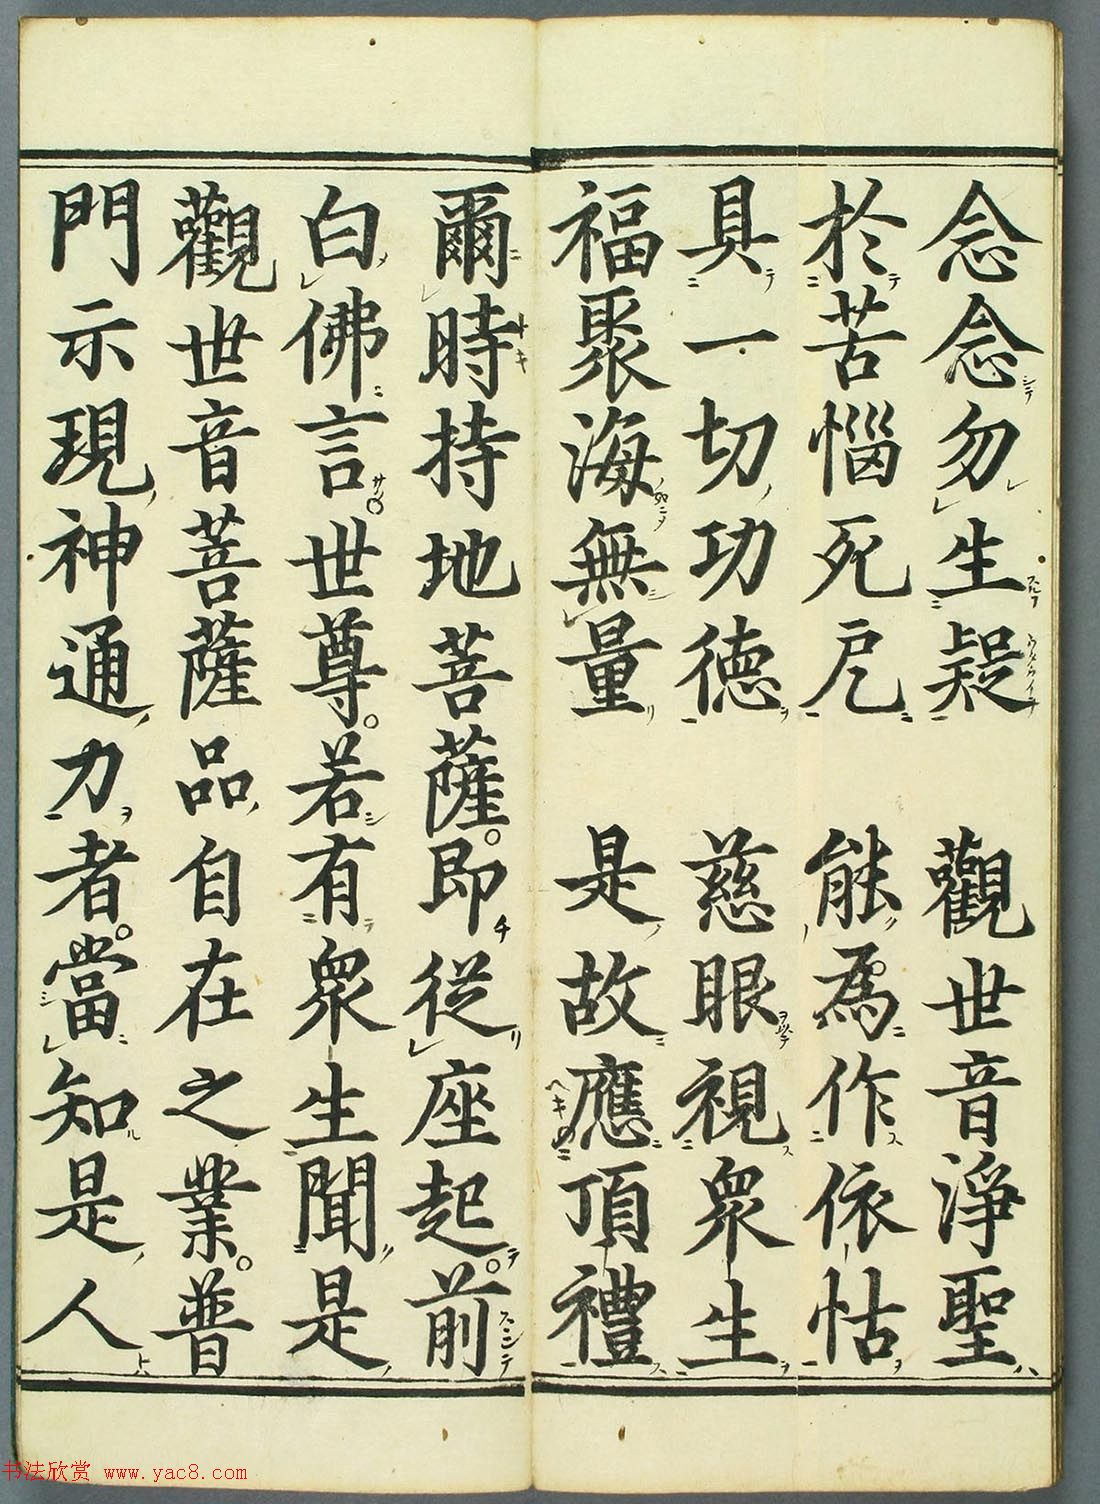 念念勿生疑　觀世音淨聖
於苦惱死戹　能為作依怙
具一切功徳　慈眼視衆生
福聚海無量　是故應頂禮
爾時持地菩薩。即從座起。前
白佛言。世尊。若有衆生聞是
觀世音菩薩品自在之業。普
門示現神通力者。當知是人
书法欣赏 www.yac8.com